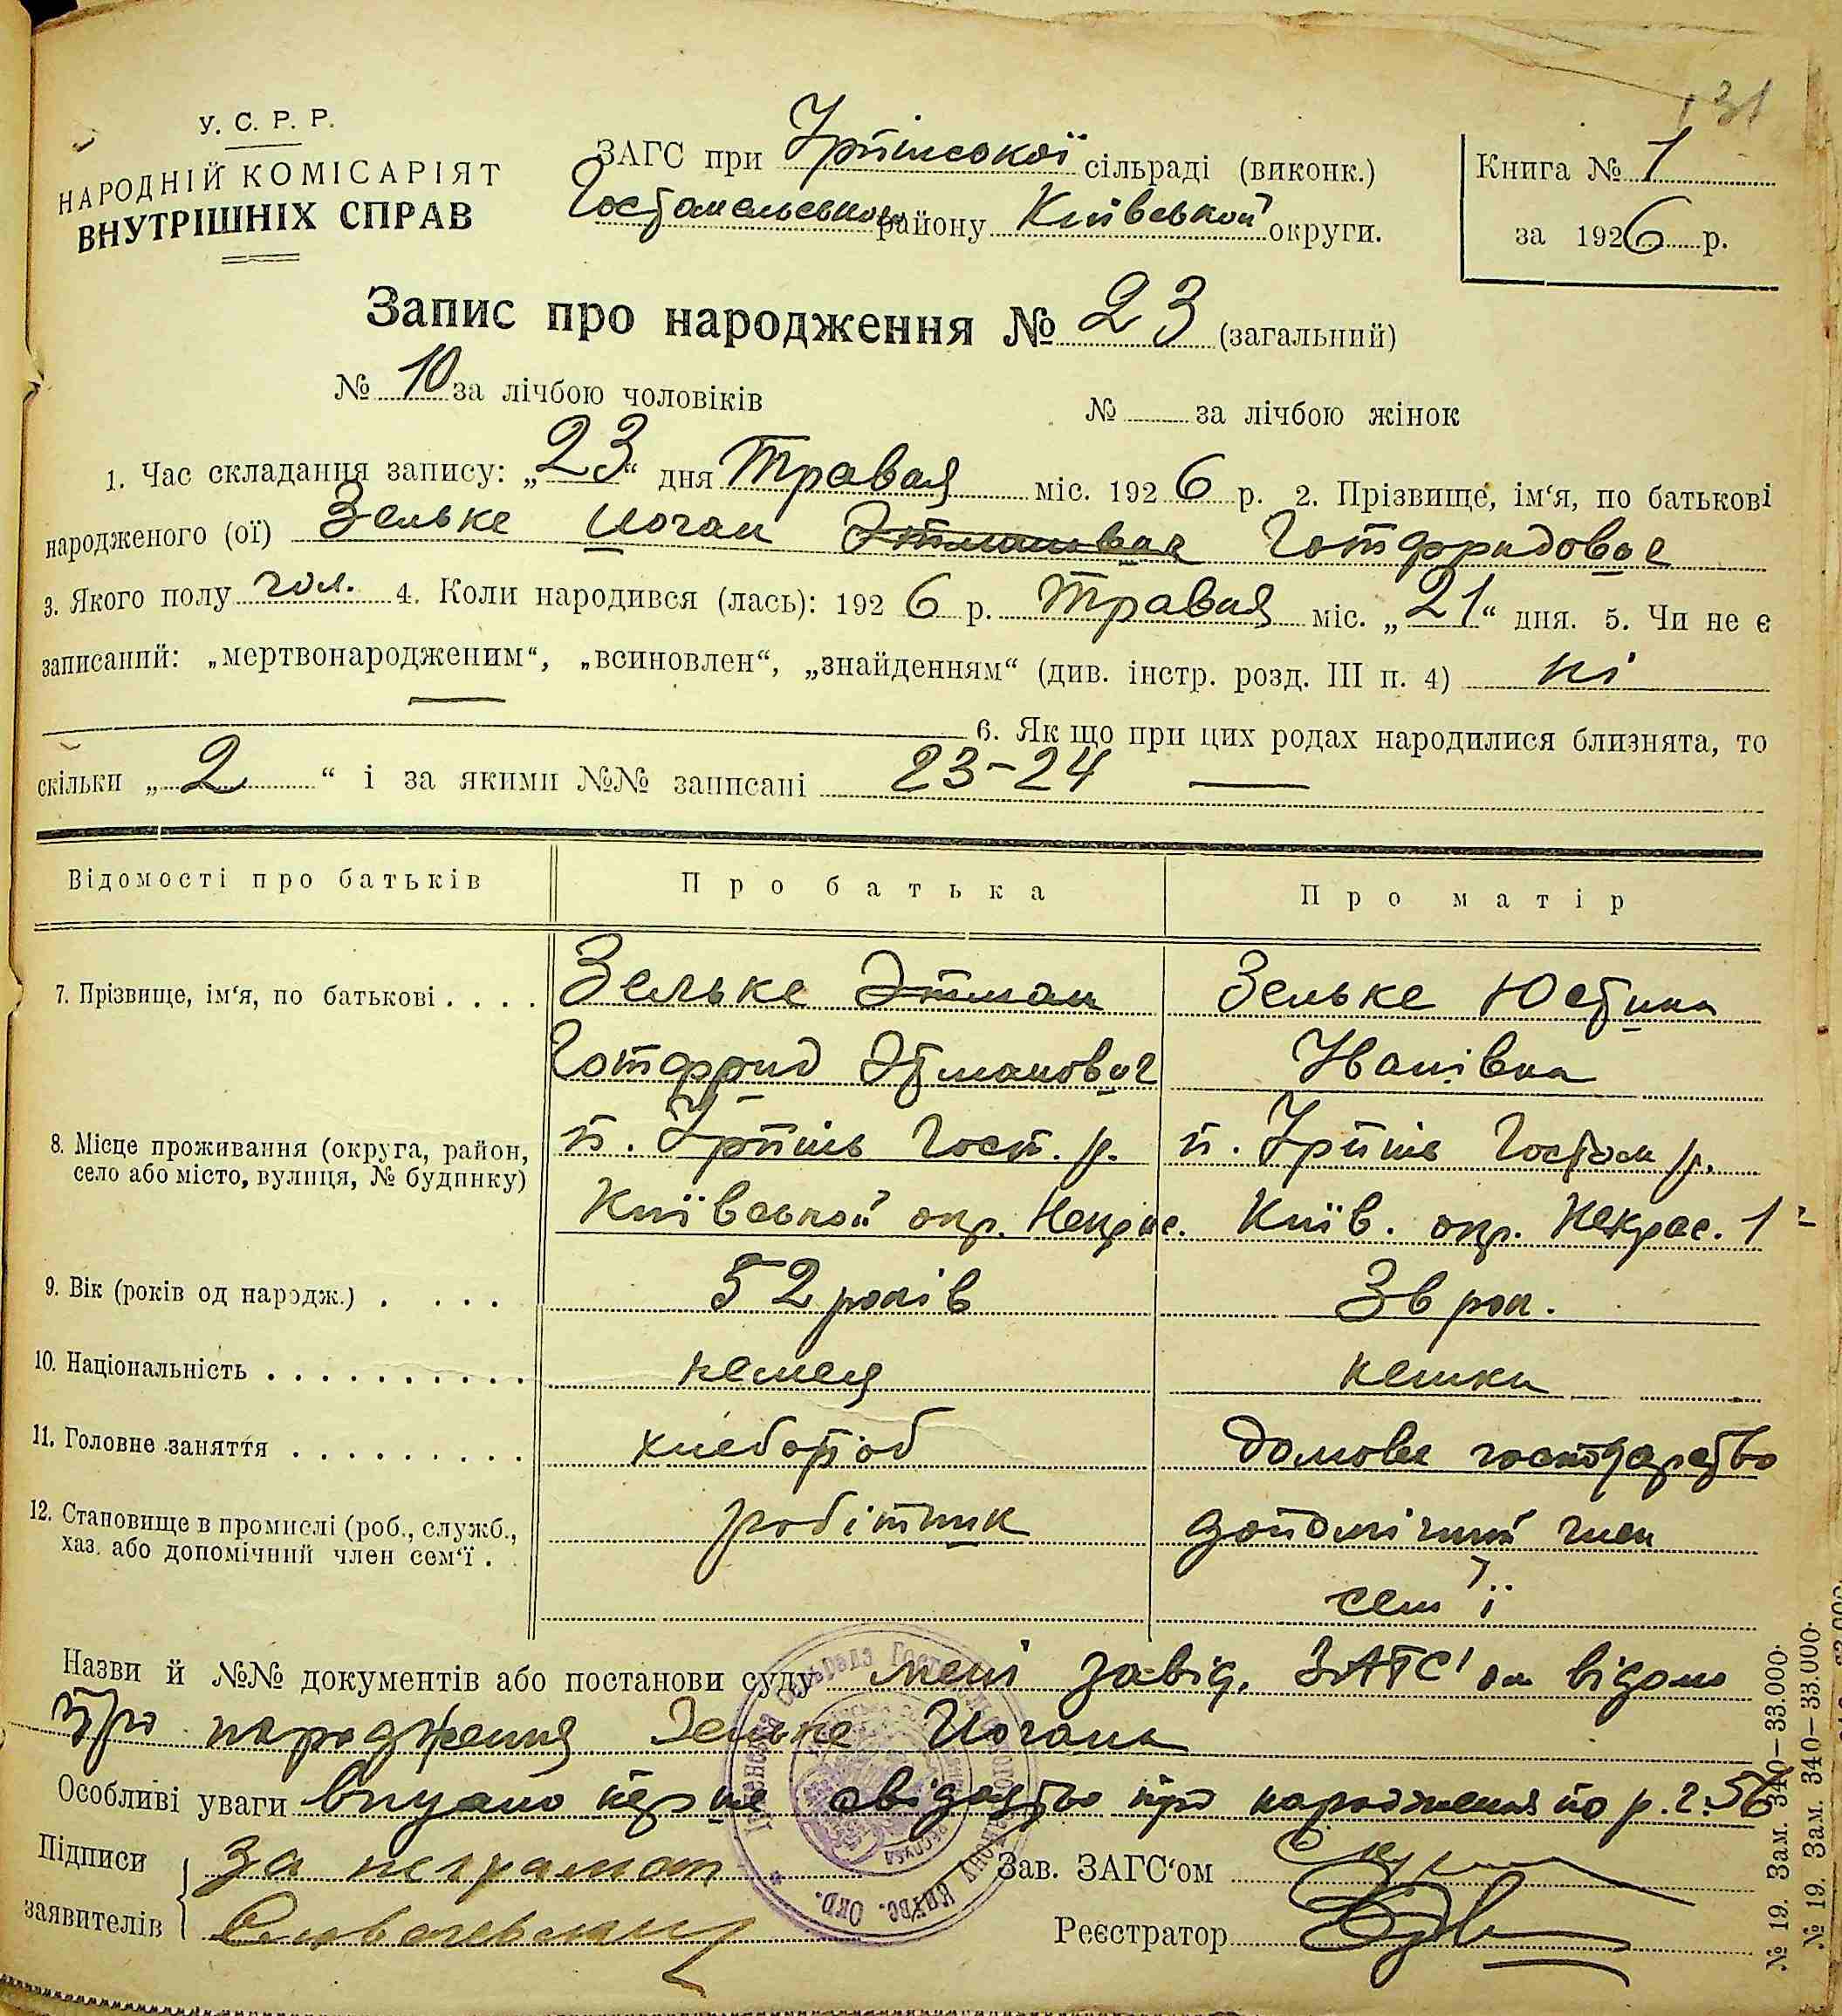 131
У. С. Р. Р.
НАРОДНІЙ КОМІСАРІЯТ
ВНУТРІШНІХ СПРАВ
ЗАГС при Ірпінської сільраді (виконк.)
Гостомельського району Київської округи.
Книга № 1
за 1926 р.
Запис про народження № 23 (загальний)
№ 10 за лічбою чоловіків № за лічбою жінок
1. Час складання запису: „23“ дня Травня міс. 1926 р. 2. Прізвище, ім‘я, по батькові
народженого (ої) Зельке Иоган Этманович Готфридович
3. Якого полу чол. 4. Коли народився (лась): 1926 р. Травня міс. „21“ дня. 5. Чи не є
записаний: „мертвонародженим“, „всиновлен“, „знайденням“ (див. інстр. розд. III п. 4) ні
6. Як що при цих родах народилися близнята, то
скільки „2“ і за якими №№ записані 23-24
Відомості про батьків Про батька Про матір
7. Прізвище, ім‘я, по батькові . . . . Зельке Этман Зельке Юстина
Готфрид Этманович Иванівна
8. Місце проживання (округа, район, п. Ірпінь Гост. р. п. Ірпінь Гостом р.
село або місто, вулиця, № будинку)
Київської окр. Некрас. Київ. окр. Некрас. 1
9. Вік (років од народж.) . . . . 52 років 36 рок.
10. Національність . . . . . . . . . . немец немка
11. Головне заняття . . . . . . . . . хлебороб домове господарство
12. Становище в промислі (роб., служб., робітник допомічний член
хаз. або допомічний член сем‘ї . .
сем'ї
Назви й №№ документів або постанови суду мені завід. ЗАГС'ом відомо
про народження Зельке Иогана
Особливі уваги видано перше свідоцтво про народження по р. 2. 56
Підписи за неграмот Зав. ЗАГС‘ом
заявителів Реєстратор
№ 19. Зам. 340—33.000.
№ 19. Зам. 340—33.000.